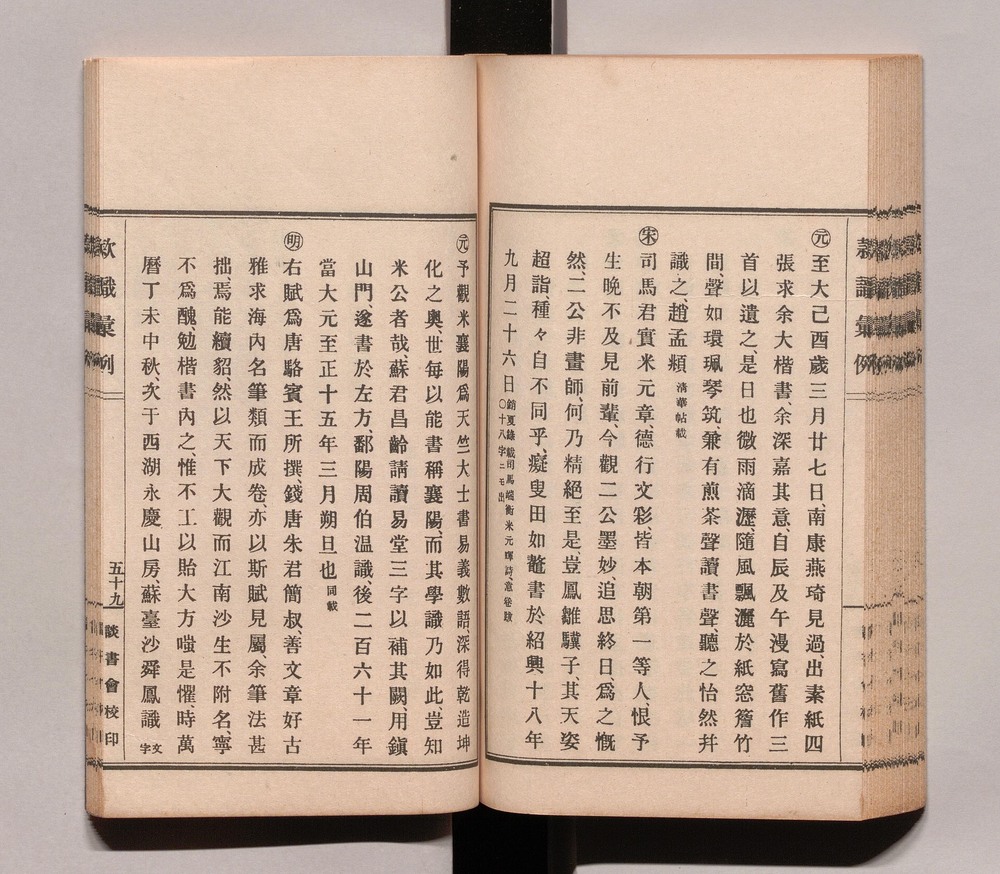 ㊎至大己酉歲三月廿七日、南康燕琦見過、出素紙四
張求余大楷書、余深嘉其意、自辰及午漫寫舊作三
首以遺之、是日也微雨滴瀝、隨風飄灑於紙窓簷竹
間、聲如環珮琴筑、兼有煎茶聲讀書聲、聽之怡然幷
識之、趙孟頫 淸華帖載
宋 司馬君實米元章、德行文彩、皆本朝第一等人、恨予
生晚不及見前輩、今觀二公墨妙、追思終日、爲之慨
然、二公非畫師、何乃精絕至是、豈鳳雛驥子、其天姿
超詣、種々自不同乎、癡叟田如鼇書於紹興十八年
九月二十六日 銷夏錄載司馬端衡米元暉詩意卷跋
〇十八字ニモ出
元 予觀米襄陽爲天竺大士書易義數語、深得乾造坤
化之奧、世每以能書稱襄陽、而其學識乃如此、豈知
米公者哉、蘇君昌齡請讀易堂三字以補其闕、用鎭
山門、遂書於左方、鄱陽周伯溫識、後二百六十一年
當大元至正十五年三月朔旦也 同載
明 右賦爲唐駱賓王所撰、錢唐朱君簡叔、善文章好古
雅求海內名筆類而成卷、亦以斯賦見屬、余筆法甚
拙、焉能續貂、然以天下大觀而江南沙生不附名、寧
不爲醜、勉楷書內之、惟不工以貽大方嗤是懼、時萬
曆丁未中秋、次于西湖永慶山房、蘇臺沙舜鳳識 文字
五十九
談書會校印